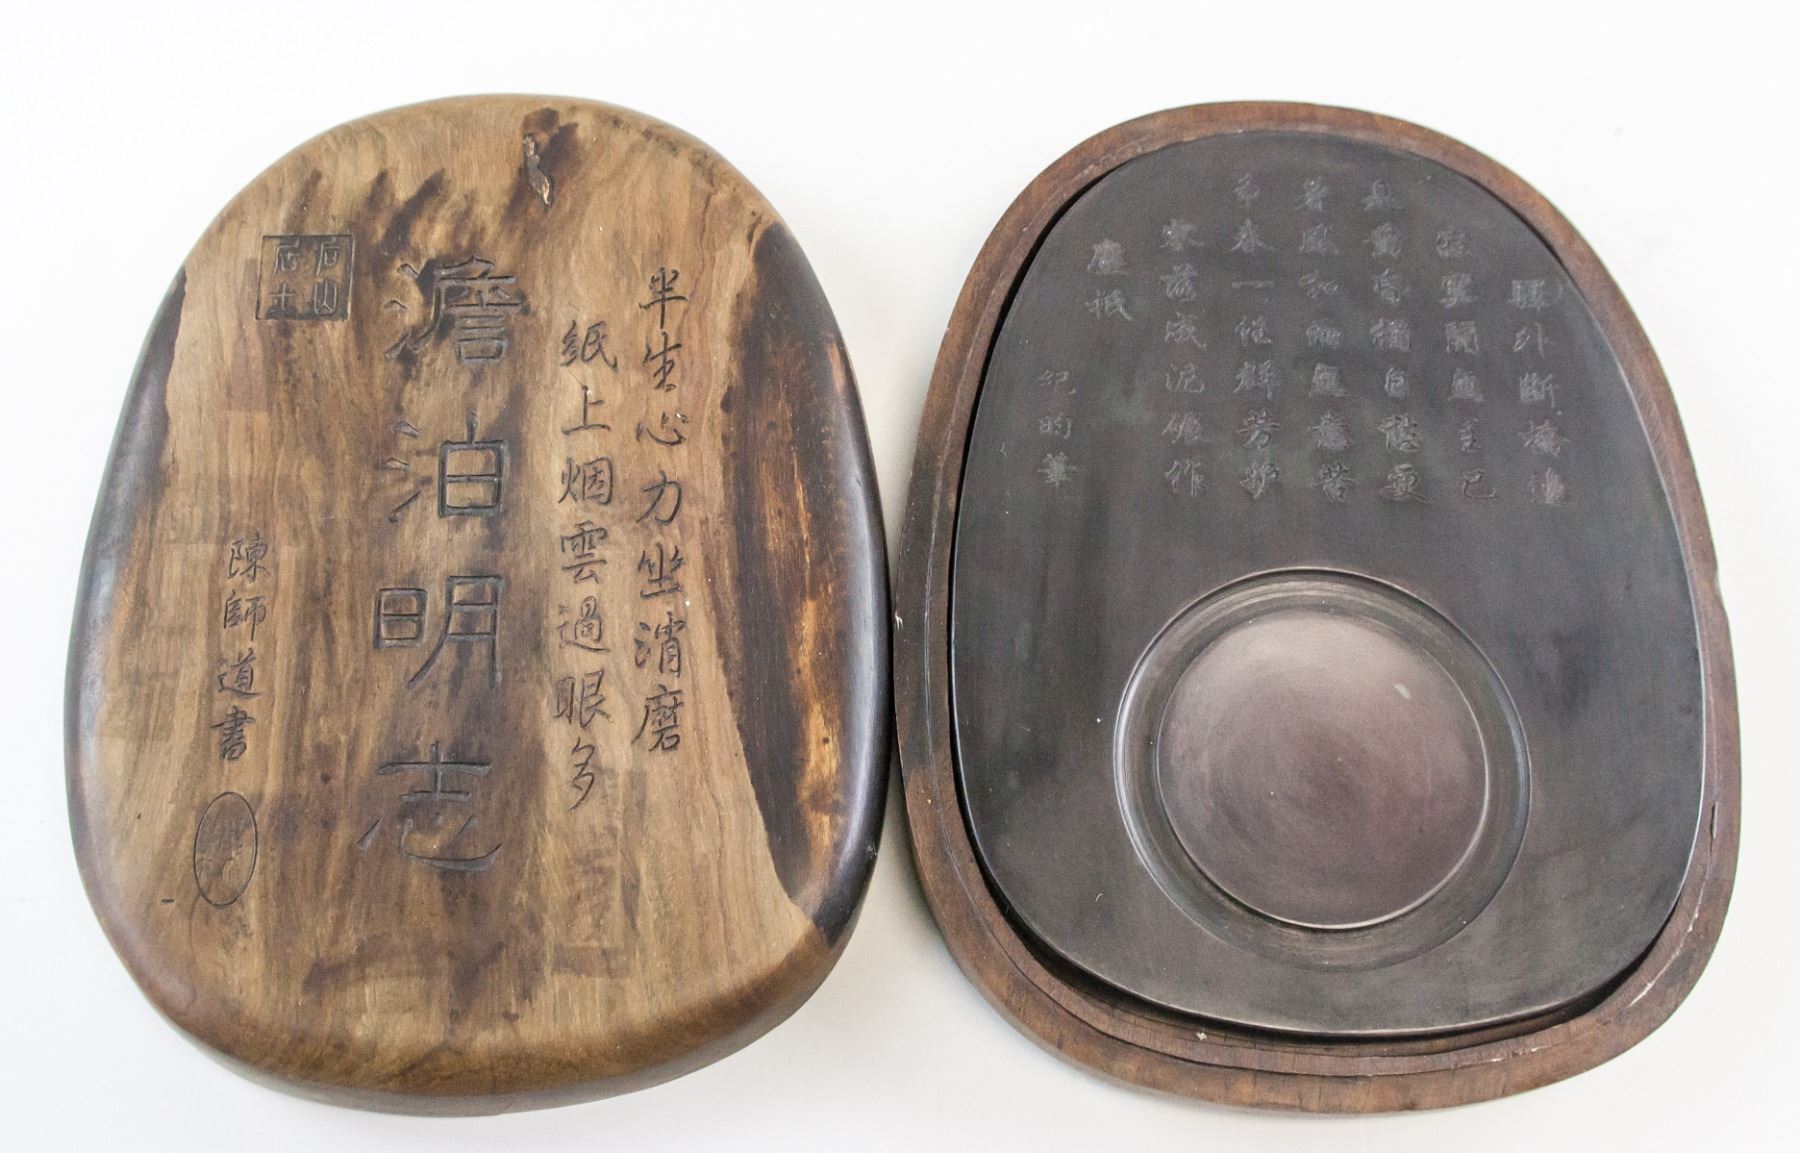 半生心力坐消磨
紙上烟雲過眼多
澹泊明志
陳師道書
驛外斷橋邊
寂寞開無主已
是黃昏獨自愁更
著風和雨無意苦
爭春一任群芳妒
零落成泥碾作
塵祇
紀昀筆